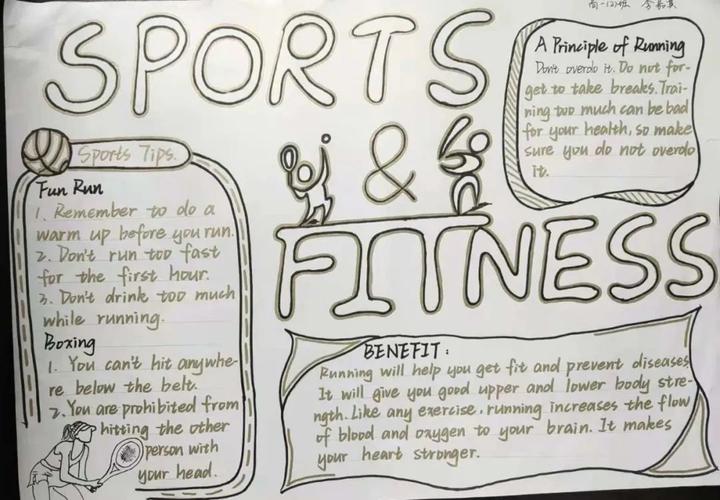 SPORTS
&
FITNESS
高一(2)班
A Principle of Running
Don't overdo it. Do not for-
get to take breaks. Trai-
ning too much can be bad
for your health, so make
sure you do not overdo
it.
Sports Tips.
Fun Run
1. Remember to do a
warm up before you run.
2. Don't run too fast
for the first hour.
3. Don't drink too much
while running.
Boxing
1. You can't hit anywhe-
re below the belt.
2. You are prohibited from
hitting the other
person with
your head.
BENEFIT:
Running will help you get fit and prevent diseases.
It will give you good upper and lower body stre-
ngth. Like any exercise, running increases the flow
of blood and oxygen to your brain. It makes
your heart stronger.